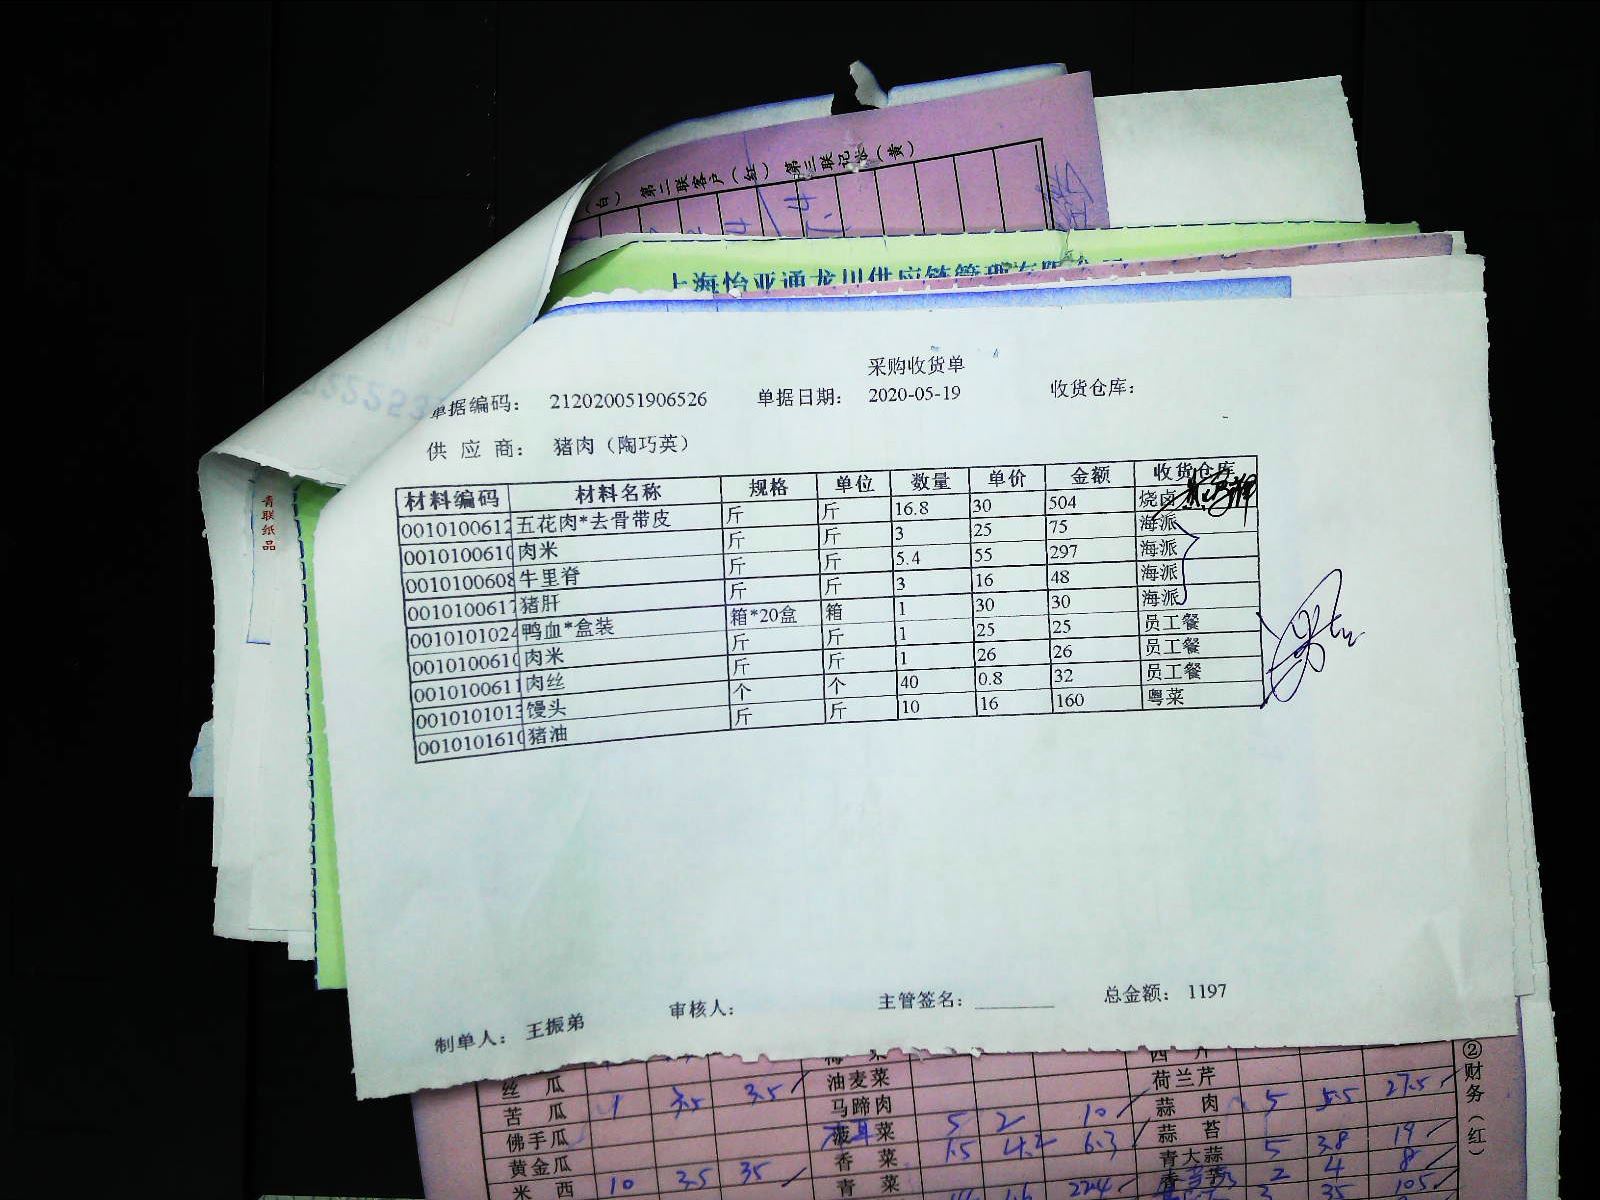 第二联客户（红） 第三联记账（黄）
上海怡亚通龙川供应链管理有限公司
青联纸品
采购收货单
单据编码： 212020051906526 单据日期： 2020-05-19 收货仓库：
供 应 商： 猪肉（陶巧英）
材料编码 材料名称 规格 单位 数量 单价 金额 收货仓库
0010100612 五花肉*去骨带皮 斤 斤 16.8 30 504 烧卤
0010100610 肉米 斤 斤 3 25 75 海派
0010100608 牛里脊 斤 斤 5.4 55 297 海派
0010100617 猪肝 斤 斤 3 16 48 海派
0010101024 鸭血*盒装 箱*20盒 箱 1 30 30 海派
0010100610 肉米 斤 斤 1 25 25 员工餐
0010100611 肉丝 斤 斤 1 26 26 员工餐
0010101013 馒头 个 个 40 0.8 32 员工餐
0010101610 猪油 斤 斤 10 16 160 粤菜
制单人： 王振弟 审核人： 主管签名： 总金额： 1197
丝 瓜 3.5 油麦菜 荷兰芹 27.5
苦 瓜 1 3.5 马蹄肉 5 2 10 蒜 肉 5 5.5
佛手瓜 菠 菜 1.5 4.2 6.3 蒜 苔 5 3.8 19
黄金瓜 香 菜 青大蒜 2 4 8
米 西 10 3.5 35 青 菜 224 3 35 105
②财务（红）